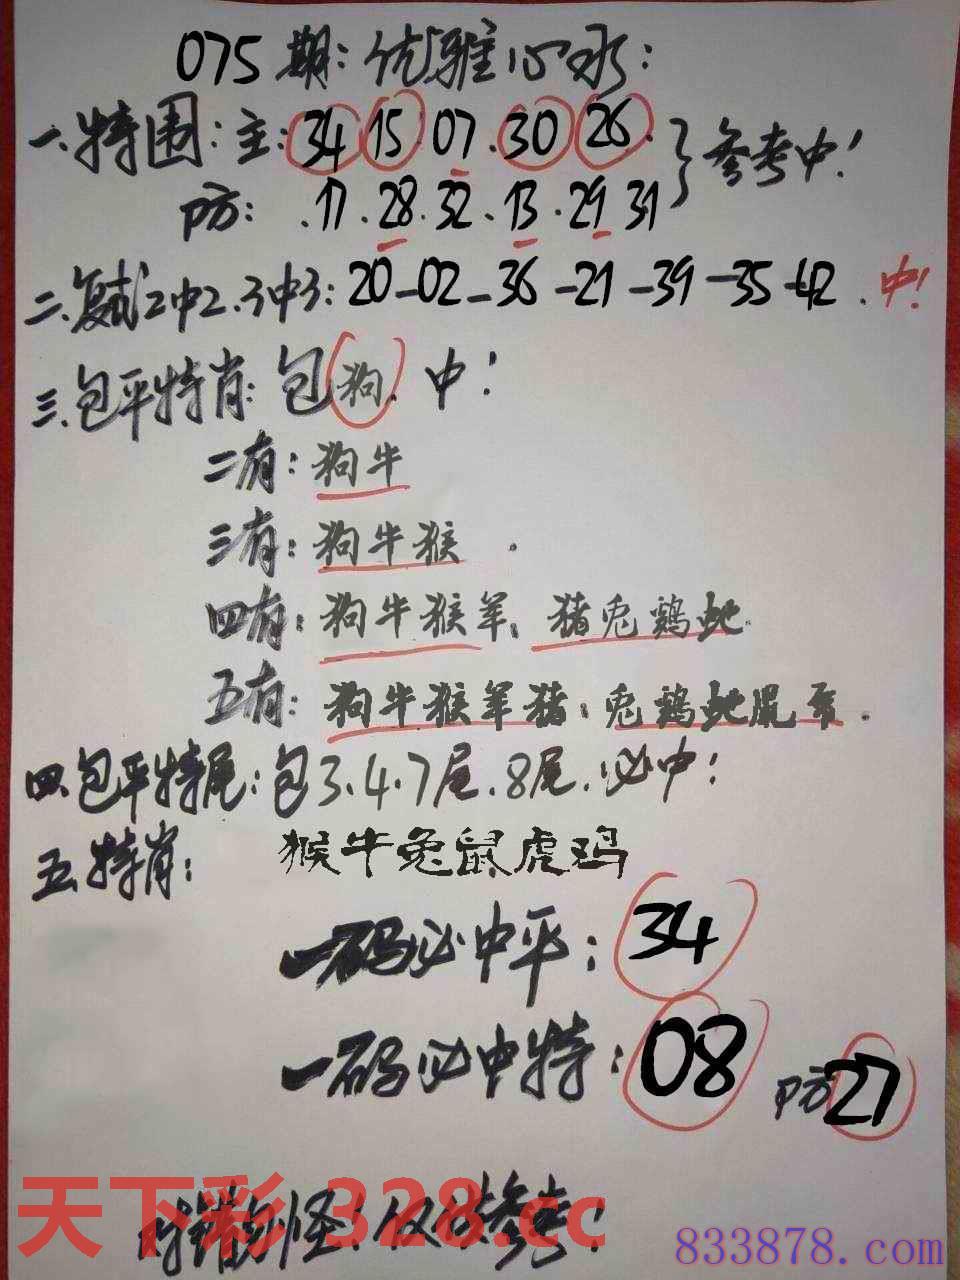 075期:优雅心水:
一.特围:主:34 15 07.30 26.
防:.17.28.32.13.29 31
}参考中!
二.复式2中2.3中3:20-02-36-21-39-35-42.中!
三.包平特肖:包狗.中!
二有:狗牛
三有:狗牛猴.
四有:狗牛猴羊,猪兔鸡蛇.
五有:狗牛猴羊猪;兔鸡蛇鼠.
四.包平特尾:包3.4.7尾.8尾.必中!
五.特肖:猴牛兔鼠虎鸡
一码必中平:34
一码必中特:08 防27
错勿怪!仅供参考!
天下彩 328.cc
833878.com